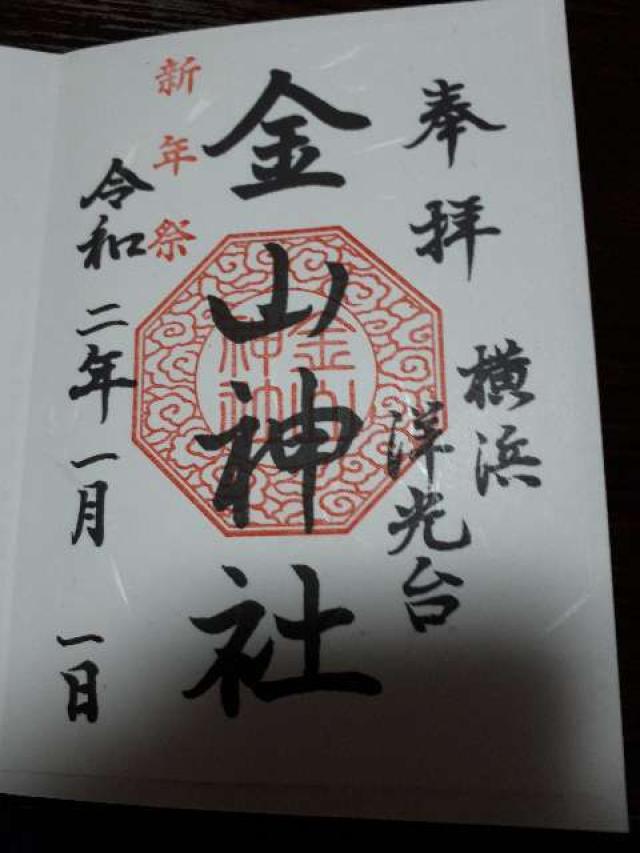 奉拝
横浜
洋光台
金山神社
金山
神社
新年祭
令和二年一月一日